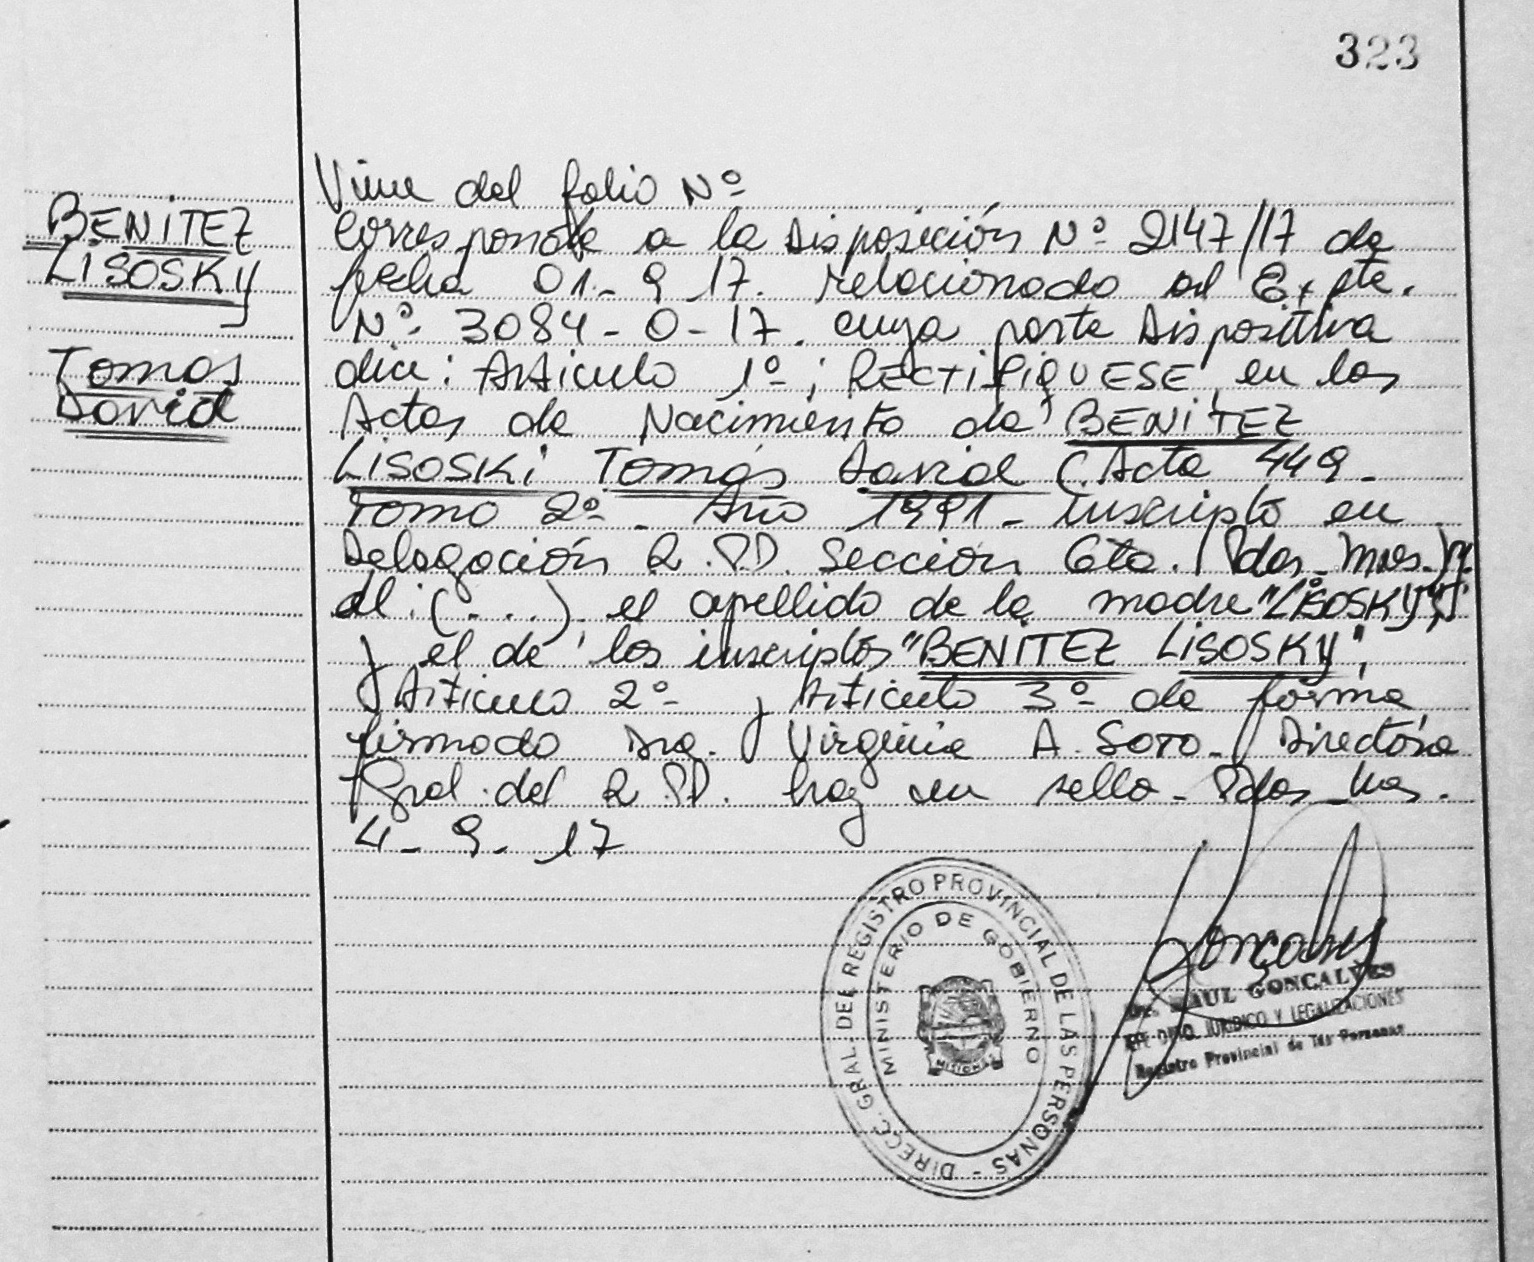 323
BENITEZ
LISOSKY
Tomas
David
Viene del folio Nº
Corresponde a la Disposición Nº 2147/17 de
fecha 01-9 17. relacionado al Expte.
Nº 3084-0-17. cuya parte Dispositiva
dice: Articulo 1º; RECTIFIQUESE en las
Actas de Nacimiento de BENITEZ
LISOSKI Tomás David (Acta 449-
Tomo 2º - Año 1991- inscripto en
Delegación R.P.P. Sección 6ta. Pdas. Mnes.
al: (...) el apellido de la madre "LISOSKY",
y el de los inscriptos "BENITEZ LISOSKY",
Articulo 2º y Articulo 3º de forma
firmado Dra. Virginia A. Soto- Directora
Gral. del R.P.P. hay un sello- Pdas Mnes.
4-9-17
DIRECC. GRAL. DEL REGISTRO PROVINCIAL DE LAS PERSONAS -
MINISTERIO DE GOBIERNO
MISIONES
Gonçalves
Dr. RAUL GONCALVES
JEFE DPTO. JURIDICO Y LEGALIZACIONES
Registro Provincial de las Personas